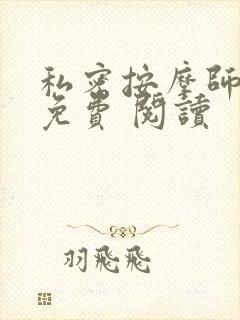 私密按摩師
免費 閱讀
羽飛飛